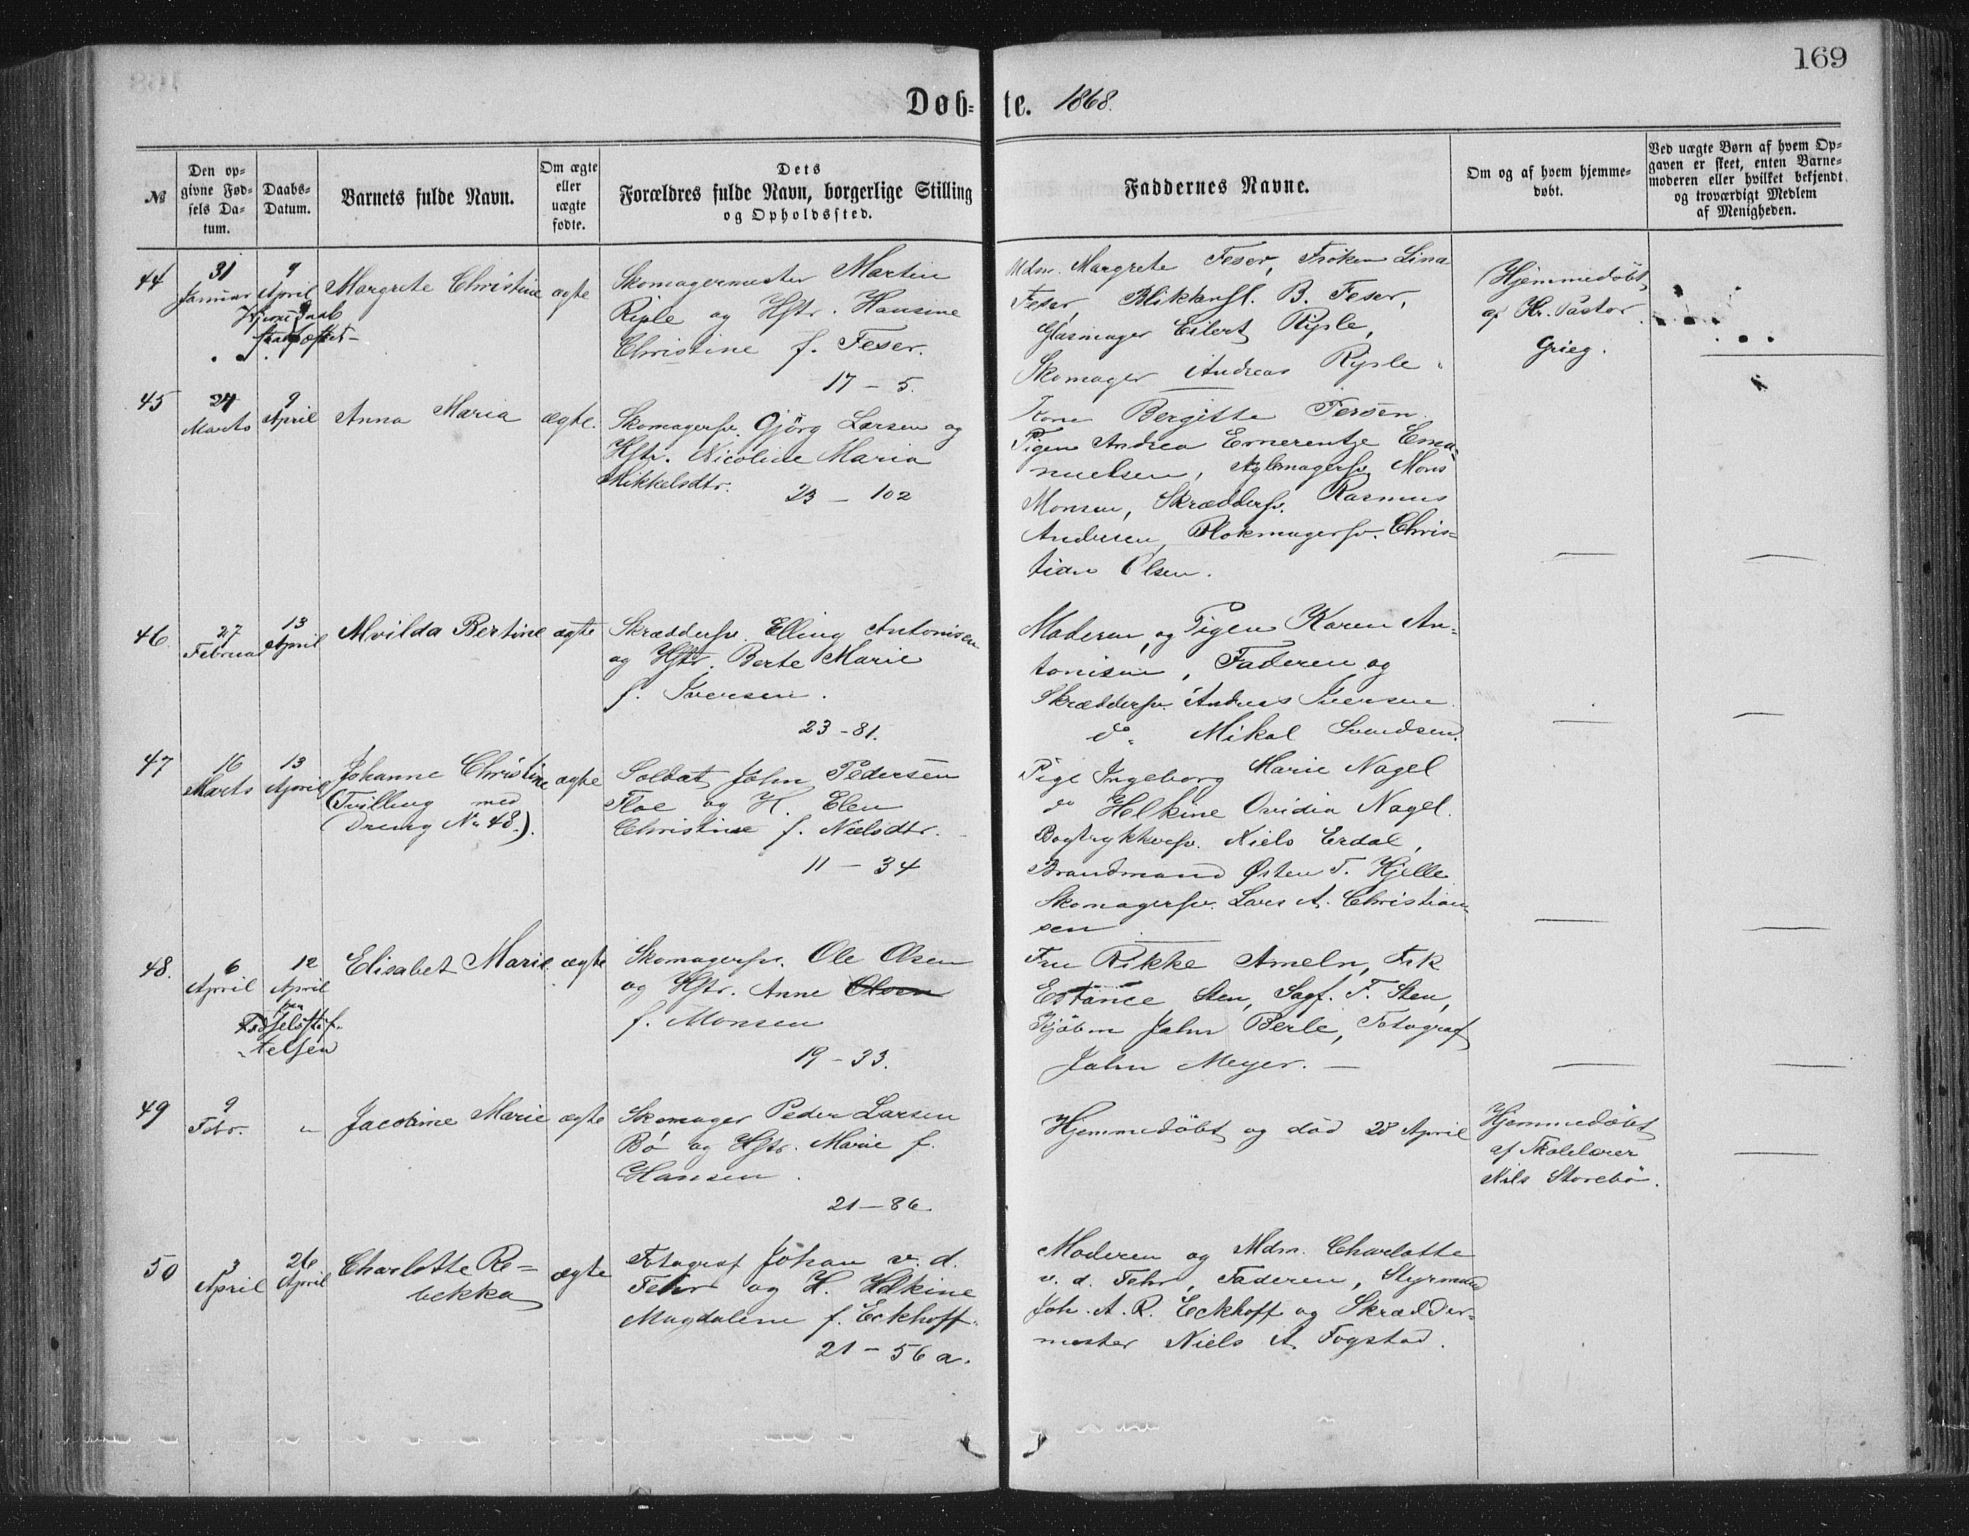 169
Døb=te. 1868.
№
Den op=
givne Fød=
sels Da=
tum.
Daabs=
Datum.
Barnets fulde Navn.
Om ægte
eller
uægte
fødte.
Dets
Forældres fulde Navn, borgerlige Stilling
og Opholdssted.
Faddernes Navne.
Om og af hvem hjemme=
døbt.
Ved uægte Børn af hvem Op=
gaven er skeet, enten Barne=
moderen eller hvilket bekjendt
og troværdigt Medlem
af Menigheden.
44
31
Januar
9
April
Hjemmedaab
stadfæstet
Margrete Christine
ægte
Skomagermester Marten
Riple og Hstr. Hansine
Christine f. Feser.
17 - 5.
Mdm. Margrete Feser, Frøken Lina
Feser, Blikkensl. B. Feser,
Glasmager Eilert Ryple,
Skomager Andreas Ryple.
Hjemmedøbt
af Hr. Pastor
Grieg.
45
24
Marts
9
April
Anna Maria
ægte.
Skomagersv. Gjørg Larsen og
Hstr. Nicoline Maria
Mikkelsdtr.
23 - 102
Kone Bergitte Fersen.
Pigen Andrea Emerentze Ema=
nuelsen, Mons
Monsen, Skræddersv. Rasmus
Andersen, Blokmagersv. Chris=
tian Olsen.
46.
27
Februar
13
April
Alvilda Bertine
ægte
Skræddersv. Elling Antonisen
og Hstr. Berte Marie
f. Iversen.
23 - 81.
Moderen, og Pigen Karen An=
tonisen, Faderen og
Skræddersv. Andreas Iversen
do Mikal Svendsen.
47
16
Marts
13
April
Johanne Christine
(Tvilling med
Dreng No 48.).
ægte
Soldat John Pedersen
Floe og H. Elen
Christine f. Nielsdtr.
11 - 34
Pige Ingeborg Marie Nagel
do Helkine Ovidia Nagel.
Bogtrykkersv. Niels Erdal,
Brandmand Østen T. Hjelle
Skomagersv. Lars A. Christian=
sen
48.
6
April
12
April
paa
Fødselsstif=
telsen
Elisabet Marie
ægte
Skomagersv. Ole Olsen
og Hstr. Anne Olsen
f. Monsen
19 - 33.
Fru Rikke Ameln, Frk
Estance Sten, Sagf. F. Sten,
Kjøbm John Berle, Fotograf
John Meyer.
49
9
Febr.
"
Jacobine Marie
ægte
Skomager Peder Larsen
Bø og Hstr. Marie f.
Hansen.
21 - 86.
Hjemmedøbt og død 28 April
Hjemmedøbt
af Skolelærer
Nils Storebø.
50
3
April
26
April
Charlotte Re=
bekka
ægte
Fotograf Johan v. d.
Fehr og H. Helkine
Magdalene f. Eckhoff.
21 - 56 a.
Moderen og Mdm. Charlotte
v. d. Fehr, Faderen, Styrmand
Joh. A. R. Eckhoff og Skrædder=
mester Niels A. Fogstad.